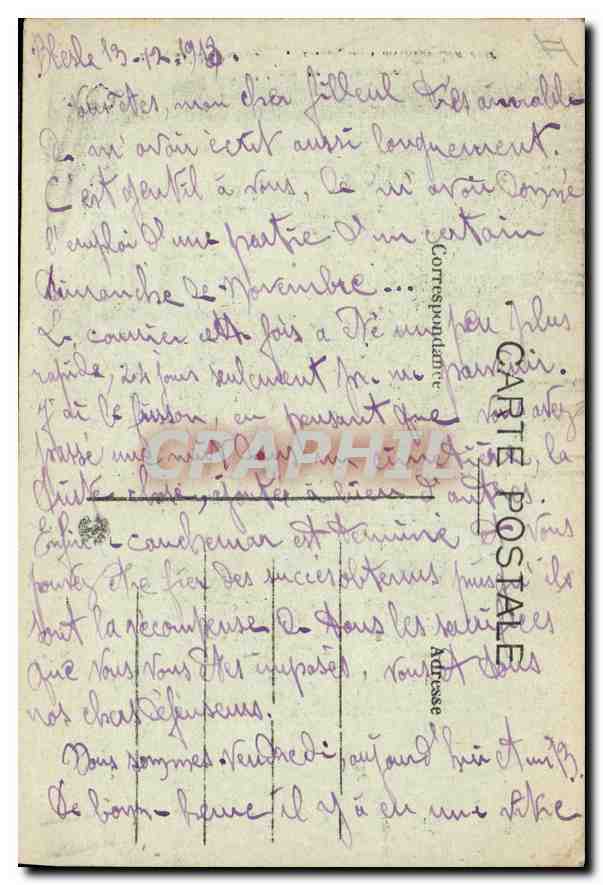 Blesle 13-12-1918.
Vous êtes, mon cher filleul très aimable
de m'avoir écrit aussi longuement.
C'est gentil à vous, de m'avoir donné
l'emploi d'une partie d'un certain
dimanche de Novembre...
Le courrier cette fois a été un peu plus
rapide, 24 jours seulement pr. me parvenir.
J'ai le frisson, en pensant que vous avez
passé une nuit dans un cimetière, la
triste chose, ajoutée à bien d'autres.
Enfin le cauchemar est terminé et vous
pouvez être fier des succès obtenus puisqu'ils
sont la récompense de tous les sacrifices
que vous vous êtes imposés, vous et tous
nos chers défenseurs.
Nous sommes Vendredi aujourd'hui et un 13.
De bonne heure il y a eu une
CARTE POSTALE
Correspondance
Adresse
CPAPHIL